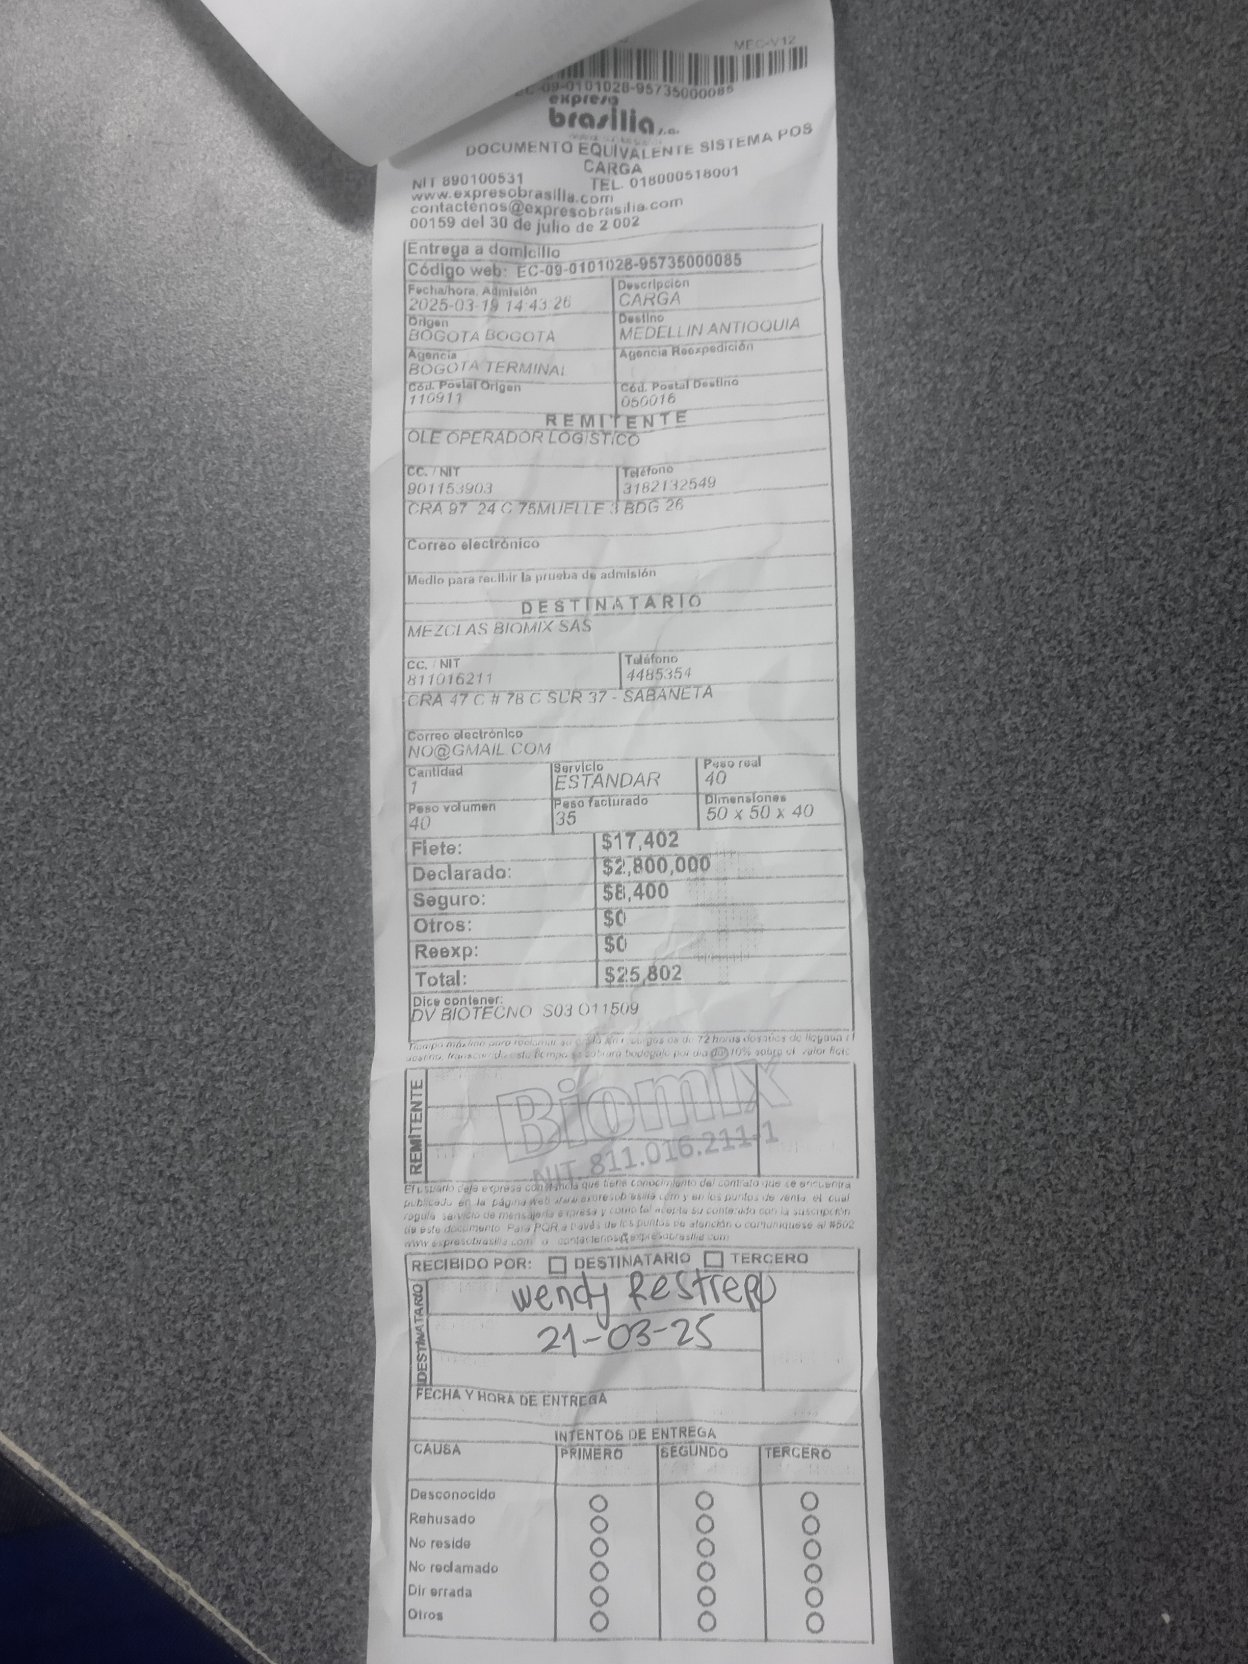 MEC-V12
EC-09-0101028-95735000085
expreso
brasilia s.a.
DOCUMENTO EQUIVALENTE SISTEMA POS
CARGA
NIT 890100531 TEL. 018000518001
www.expresobrasilia.com
contactenos@expresobrasilia.com
00159 del 30 de julio de 2 002
Entrega a domicilio
Código web: EC-09-0101028-95735000085
Fecha/hora. Admisión Descripcion
2025-03-19 14:43:26 CARGA
Origen Destino
BOGOTA BOGOTA MEDELLIN ANTIOQUIA
Agencia Agencia Reexpedición
BOGOTA TERMINAL
Cód. Postal Origen Cód. Postal Destino
110911 050016
REMITENTE
OLE OPERADOR LOGISTICO
CC. / NIT Teléfono
901153903 3182132549
CRA 97 24 C 75MUELLE 3 BDG 26
Correo electrónico
Medio para recibir la prueba de admisión
DESTINATARIO
MEZCLAS BIOMIX SAS
CC. / NIT Teléfono
811016211 4485354
CRA 47 C # 78 C SUR 37 - SABANETA
Correo electrónico
NO@GMAIL.COM
Cantidad Servicio Peso real
1 ESTANDAR 40
Peso volumen Peso facturado Dimensiones
40 35 50 x 50 x 40
Flete: $17,402
Declarado: $2,800,000
Seguro: $8,400
Otros: $0
Reexp: $0
Total: $25,802
Dice contener:
DV BIOTECNO S03 O11509
Tiempo máximo para reclamar su de 72 horas después de llegada
destino, transcurrido este tiempo se cobrara bodegaje por dia del 10% sobre el valor flete
REMITENTE
Biomix
NIT. 811.016.211-1
El usuario deja expresa constancia que tiene conocimiento del contrato que se encuentra
publicado en la página web www.expresobrasilia.com y en los puntos de venta, el cual
regula servicio de mensajería expresa y como tal acepta su contenido con la suscripción
de este documento. Para PQR a través de los puntos de atención o comuniquese al #502
www.expresobrasilia.com o contactenos@expresobrasilia.com
RECIBIDO POR: DESTINATARIO TERCERO
DESTINATARIO
Wendy Restrepo
21-03-25
FECHA Y HORA DE ENTREGA
INTENTOS DE ENTREGA
CAUSA PRIMERO SEGUNDO TERCERO
Desconocido
Rehusado
No reside
No reclamado
Dir errada
Otros